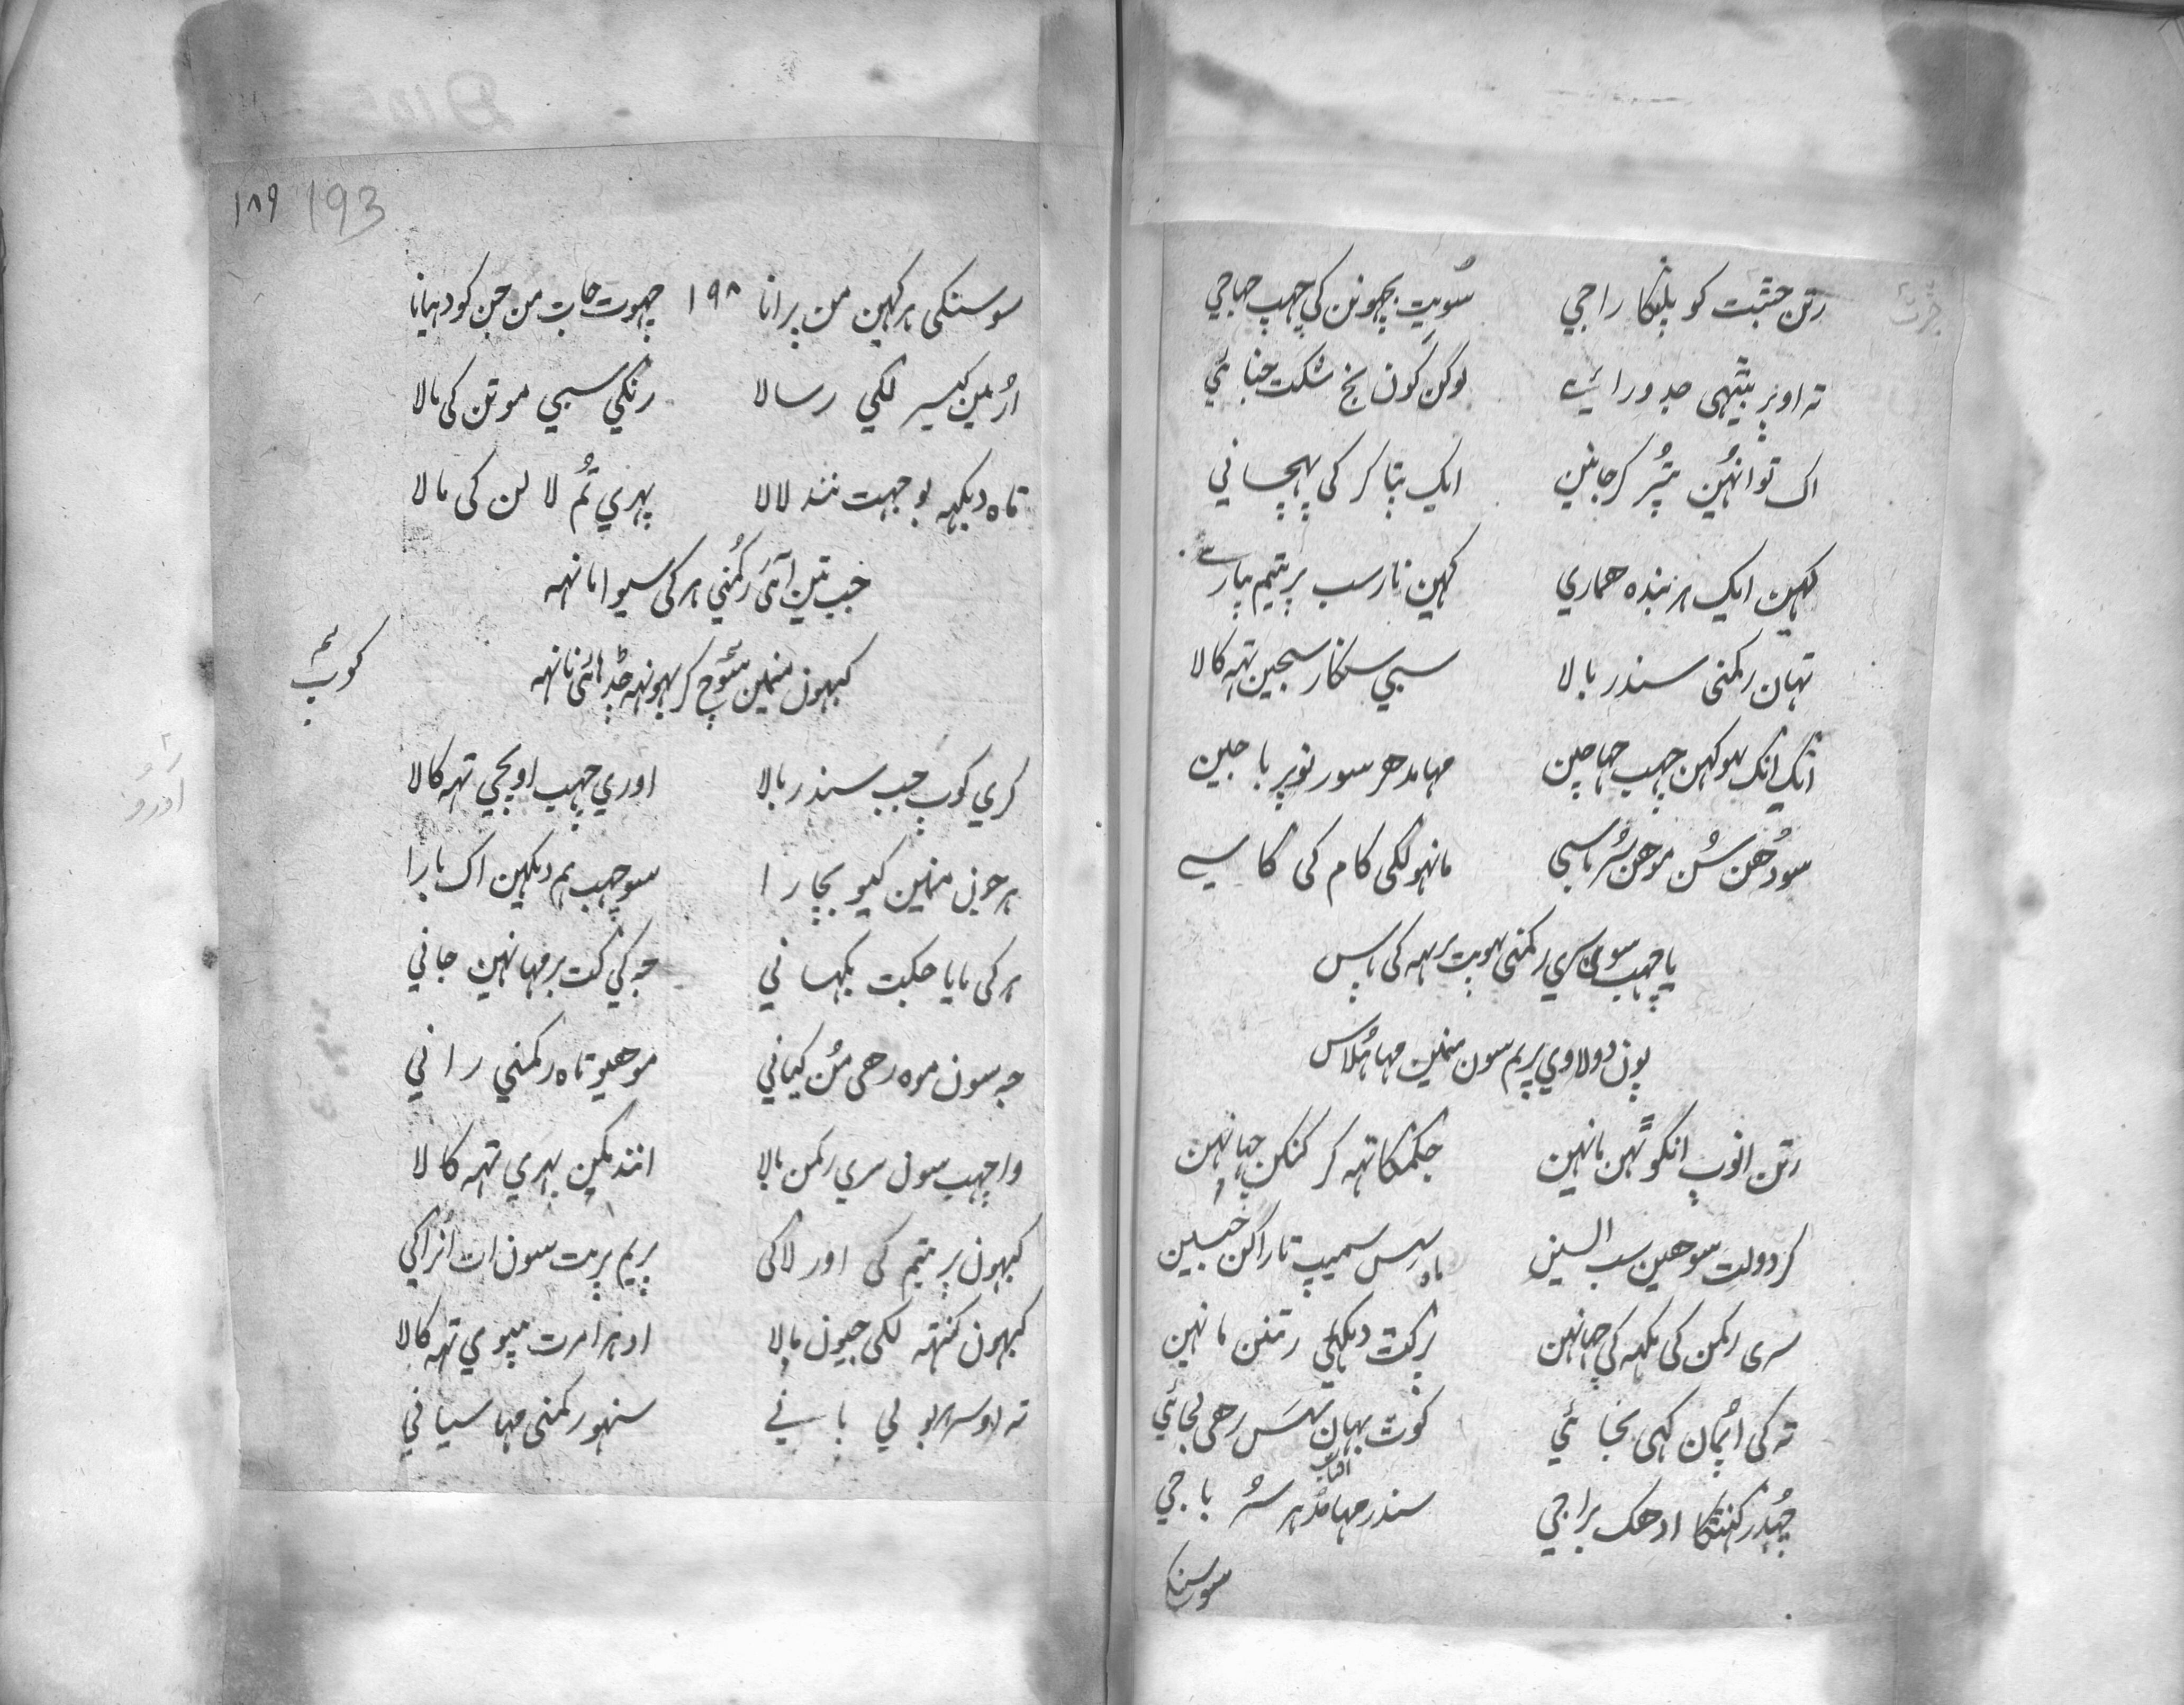 رتن جتبت کو پلنکا راجي سُویت بچھونن کي چھب چھاجي
ته اوپر بیٹھی جدورائے لوکن کون نج شکت جنائي
اک تو انھین تپُر کر جانین ایک پتا کر کی پہچاني
کہین ایک ہر بندہ ہماري کہین نار سب پریتم پیارے
تہان رکمنی سندر بالا سبي سنکار سجین تہہ کالا
انک انک بھوکہن چھب چھاجین مہا مدھر سور نوپر باجین
سودُھن سُن موھن سُر باسی مانہو لکی کام کی کاسے
یا چھب سون سري رکمنی ہوپت ہر کی پاس
پون دولاوي پریم سون منمین مہا ہُلاس
رتن انوپ انکوٹہن مانہین جکمکا تہہ کر کنکن چھانہین
کر دولت سوھین سب السین ماہ سیس سمیپ تارا کن جیسین
سری رکمن کی مکہہ کي چھانہن پرکت دیکہائي رتنن مانہین
ته کی اپمان کہی نجائي کوٹ بہان سہس رھی لجائي
چھدر کنٹکا ادھک براجي سندر مہا مدُہر سُر باجي
سو سنکی
۱۸۹ 193
سو سنکی ہر کہین من پرانا ۱۹۸ چھوت جات من جن کو دہیانا
اُر مین کیسر لکي رسالا رنکي سبي موتن کی مالا
تاہ دیکہہ بوجہت نند لالا پہري تُم لالن کی مالا
جب تین آئی رکُمني ہر کی سیوا مانہہ
کبہون منمین سُوچ کر بہونہہ چڈہائی نانہہ
کوپ
کري کوپ جب سندر بالا اوري چھب اوپجي تہہ کالا
ہر جونی منمین کیو بچارا سو چھب ہم دیکہین اک بارا
ہر کی مایا جکت بکہاني جہ کي کت برمہا نہین جاني
جہ سون موہ رھی مُن کیاني موھیو تاہ رکمني راني
وا چھب سون سري رکمن بالا انند مکن بہري تہہ کالا
کبہون پریتم کی اور لاکی پریم پریت سون ات انُراکي
کبہون کنٹہہ لکی جیون مالا ادہر امرت پیوي تہہ کالا
ته اوسر بولي باني سنہو رکمنی مہا سیاني